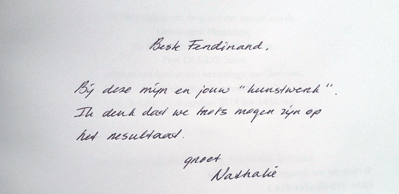 Beste Ferdinand,
Bij deze mijn en jouw "kunstwerk".
Ik denk dat we trots mogen zijn op
het resultaat.
groet
Nathalie